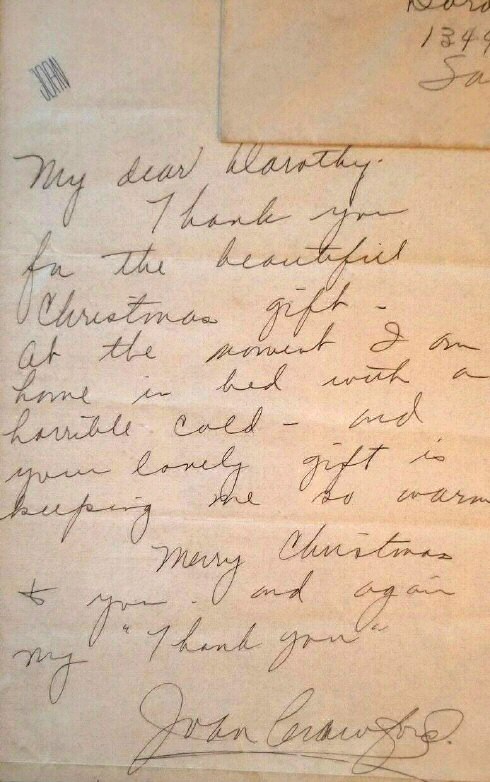 1344
Sa
JOAN
My dear Dorothy.
Thank you
for the beautiful
Christmas gift -
At the moment I am
home in bed with a
horrible cold - and
your lovely gift is
keeping me so warm
Merry Christmas
to you - and again
my "Thank you"
Joan Crawford.